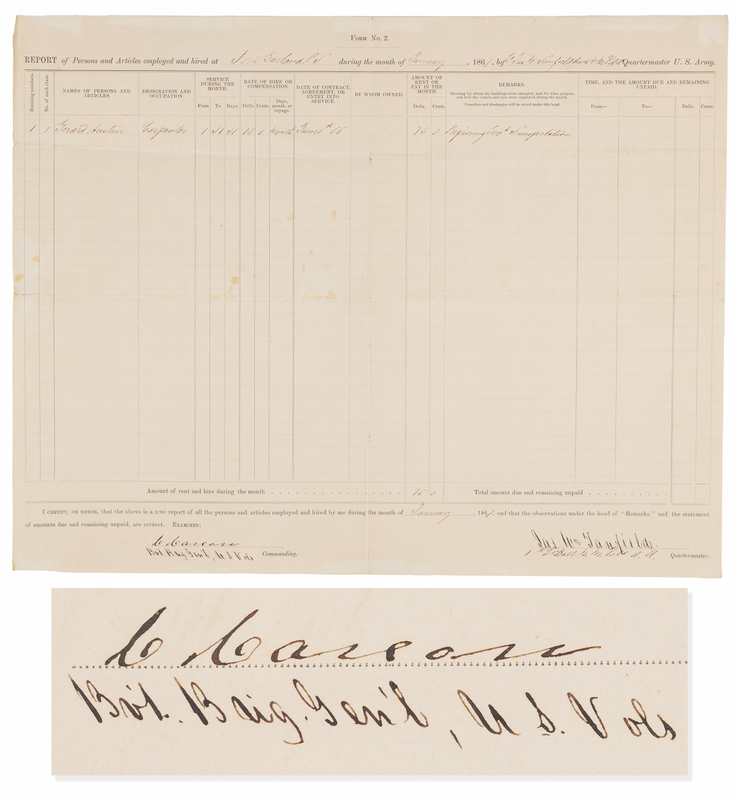 FORM NO. 2.
REPORT of Persons and Articles employed and hired at Fort Garland, C. T. during the month of January, 1867, by Quartermaster U. S. Army.
Running numbers. No. of each class. NAMES OF PERSONS AND ARTICLES. DESIGNATION AND OCCUPATION. SERVICE DURING THE MONTH RATE OF HIRE OR COMPENSATION. DATE OF CONTRACT, AGREEMENT, OR ENTRY INTO SERVICE BY WHOM OWNED. AMOUNT OF RENT OR PAY IN THE MONTH. REMARKS. TIME, AND THE AMOUNT DUE AND REMAINING UNPAID.
Transfers and discharges will be noted under this head.
From To Days. Dolls. Cents. Days, month, or voyage. Dolls. Cents. From— To— Dolls. Cents.
1 1 Carpenter 1 31 31 75 month 75 Repairing Transportation
Amount of rent and hire during the month 75 Total amount due and remaining unpaid
I CERTIFY, ON HONOR, that the above is a true report of all the persons and articles employed and hired by me during the month of January, 1867, and that the observations under the head of "Remarks," and the statement
of amounts due and remaining unpaid, are correct. EXAMINED:
C Carson
Bvt. Brig. Gen'l, U S Vols Commanding.
Jas. Quartermaster.
C Carson
Bvt. Brig. Gen'l, U S. Vols